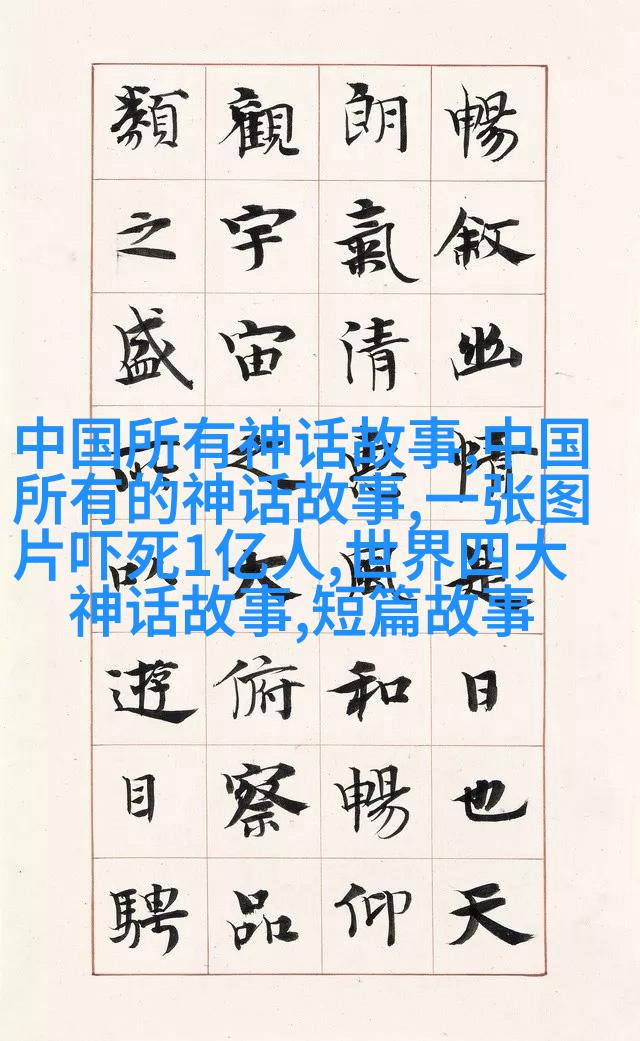 暢敘幽情是日也天
朗氣清惠風和暢仰
觀宇宙之大俯察品
類之盛所以遊目騁
中国所有神话故事,中国
所有的神话故事,一张图
片吓死1亿人,世界四大
神话故事,短篇故事